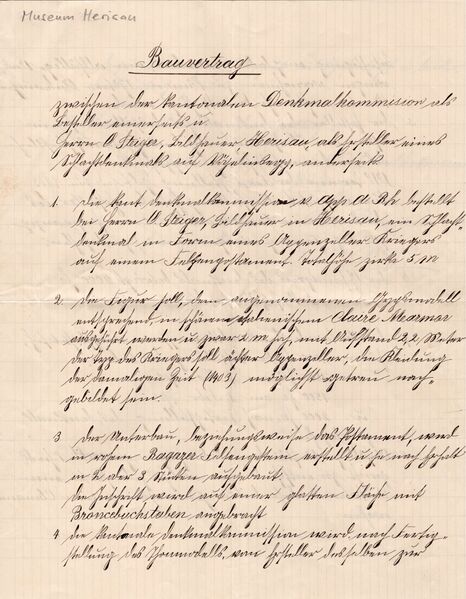 Museum Herisau
Bauvertrag
zwischen der kantonalen Denkmalkommission als
Besteller einerseits u.
Herrn O Steiger, Bildhauer Herisau als Ersteller eines
Schlachtdenkmals auf Vögelinsegg, anderseits
1. Die kant Denkmalkommission v. App. A. Rh bestellt
bei Herrn O Steiger, Bildhauer in Herisau, ein Schlacht-
denkmal in Form eines Appenzeller Kriegers
auf einem Felsenpostament. Totalhöhe zirka 5 m
2. Die Figur soll, dem angenommenen Gypsmodell
entsprechend, in schönem italienischem Claire Marmor
ausgeführt werden u zwar 2 m hoch, mit Aufstand 2,2 Meter
der Typ des Kriegers soll ächter Appenzeller, die Kleidung
der damaligen Zeit (1403) möglichst getreu nach-
gebildet sein.
3 Der Unterbau, beziehungsweise das Postament, wird
in Ragazer Felsengestein erstellt u je nach Gehalt
in 2 oder 3 Stücken aufgebaut
die Inschrift wird auf einer glatten Fläche mit
Broncebuchstaben angebracht
4 die kantonale Denkmalkommission wird nach Fertig-
stellung des Thonmodells, vom Ersteller desselben zur